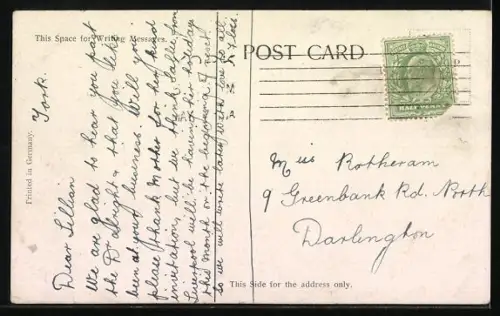 This Space for Writing Messages.
POST CARD
HALF PENNY
Printed in Germany.
York.
Dear Lillian
We are glad to hear you past
the Dr alright & that you like
been at your business. Will you
please thank Mother for her kind
invitations, but we think Sallie from
Liverpool will be having her holidays
this month or the beginning of
so we will write later, with love to all
Miss Rotheram
9 Greenbank Rd. North
Darlington
This Side for the address only.